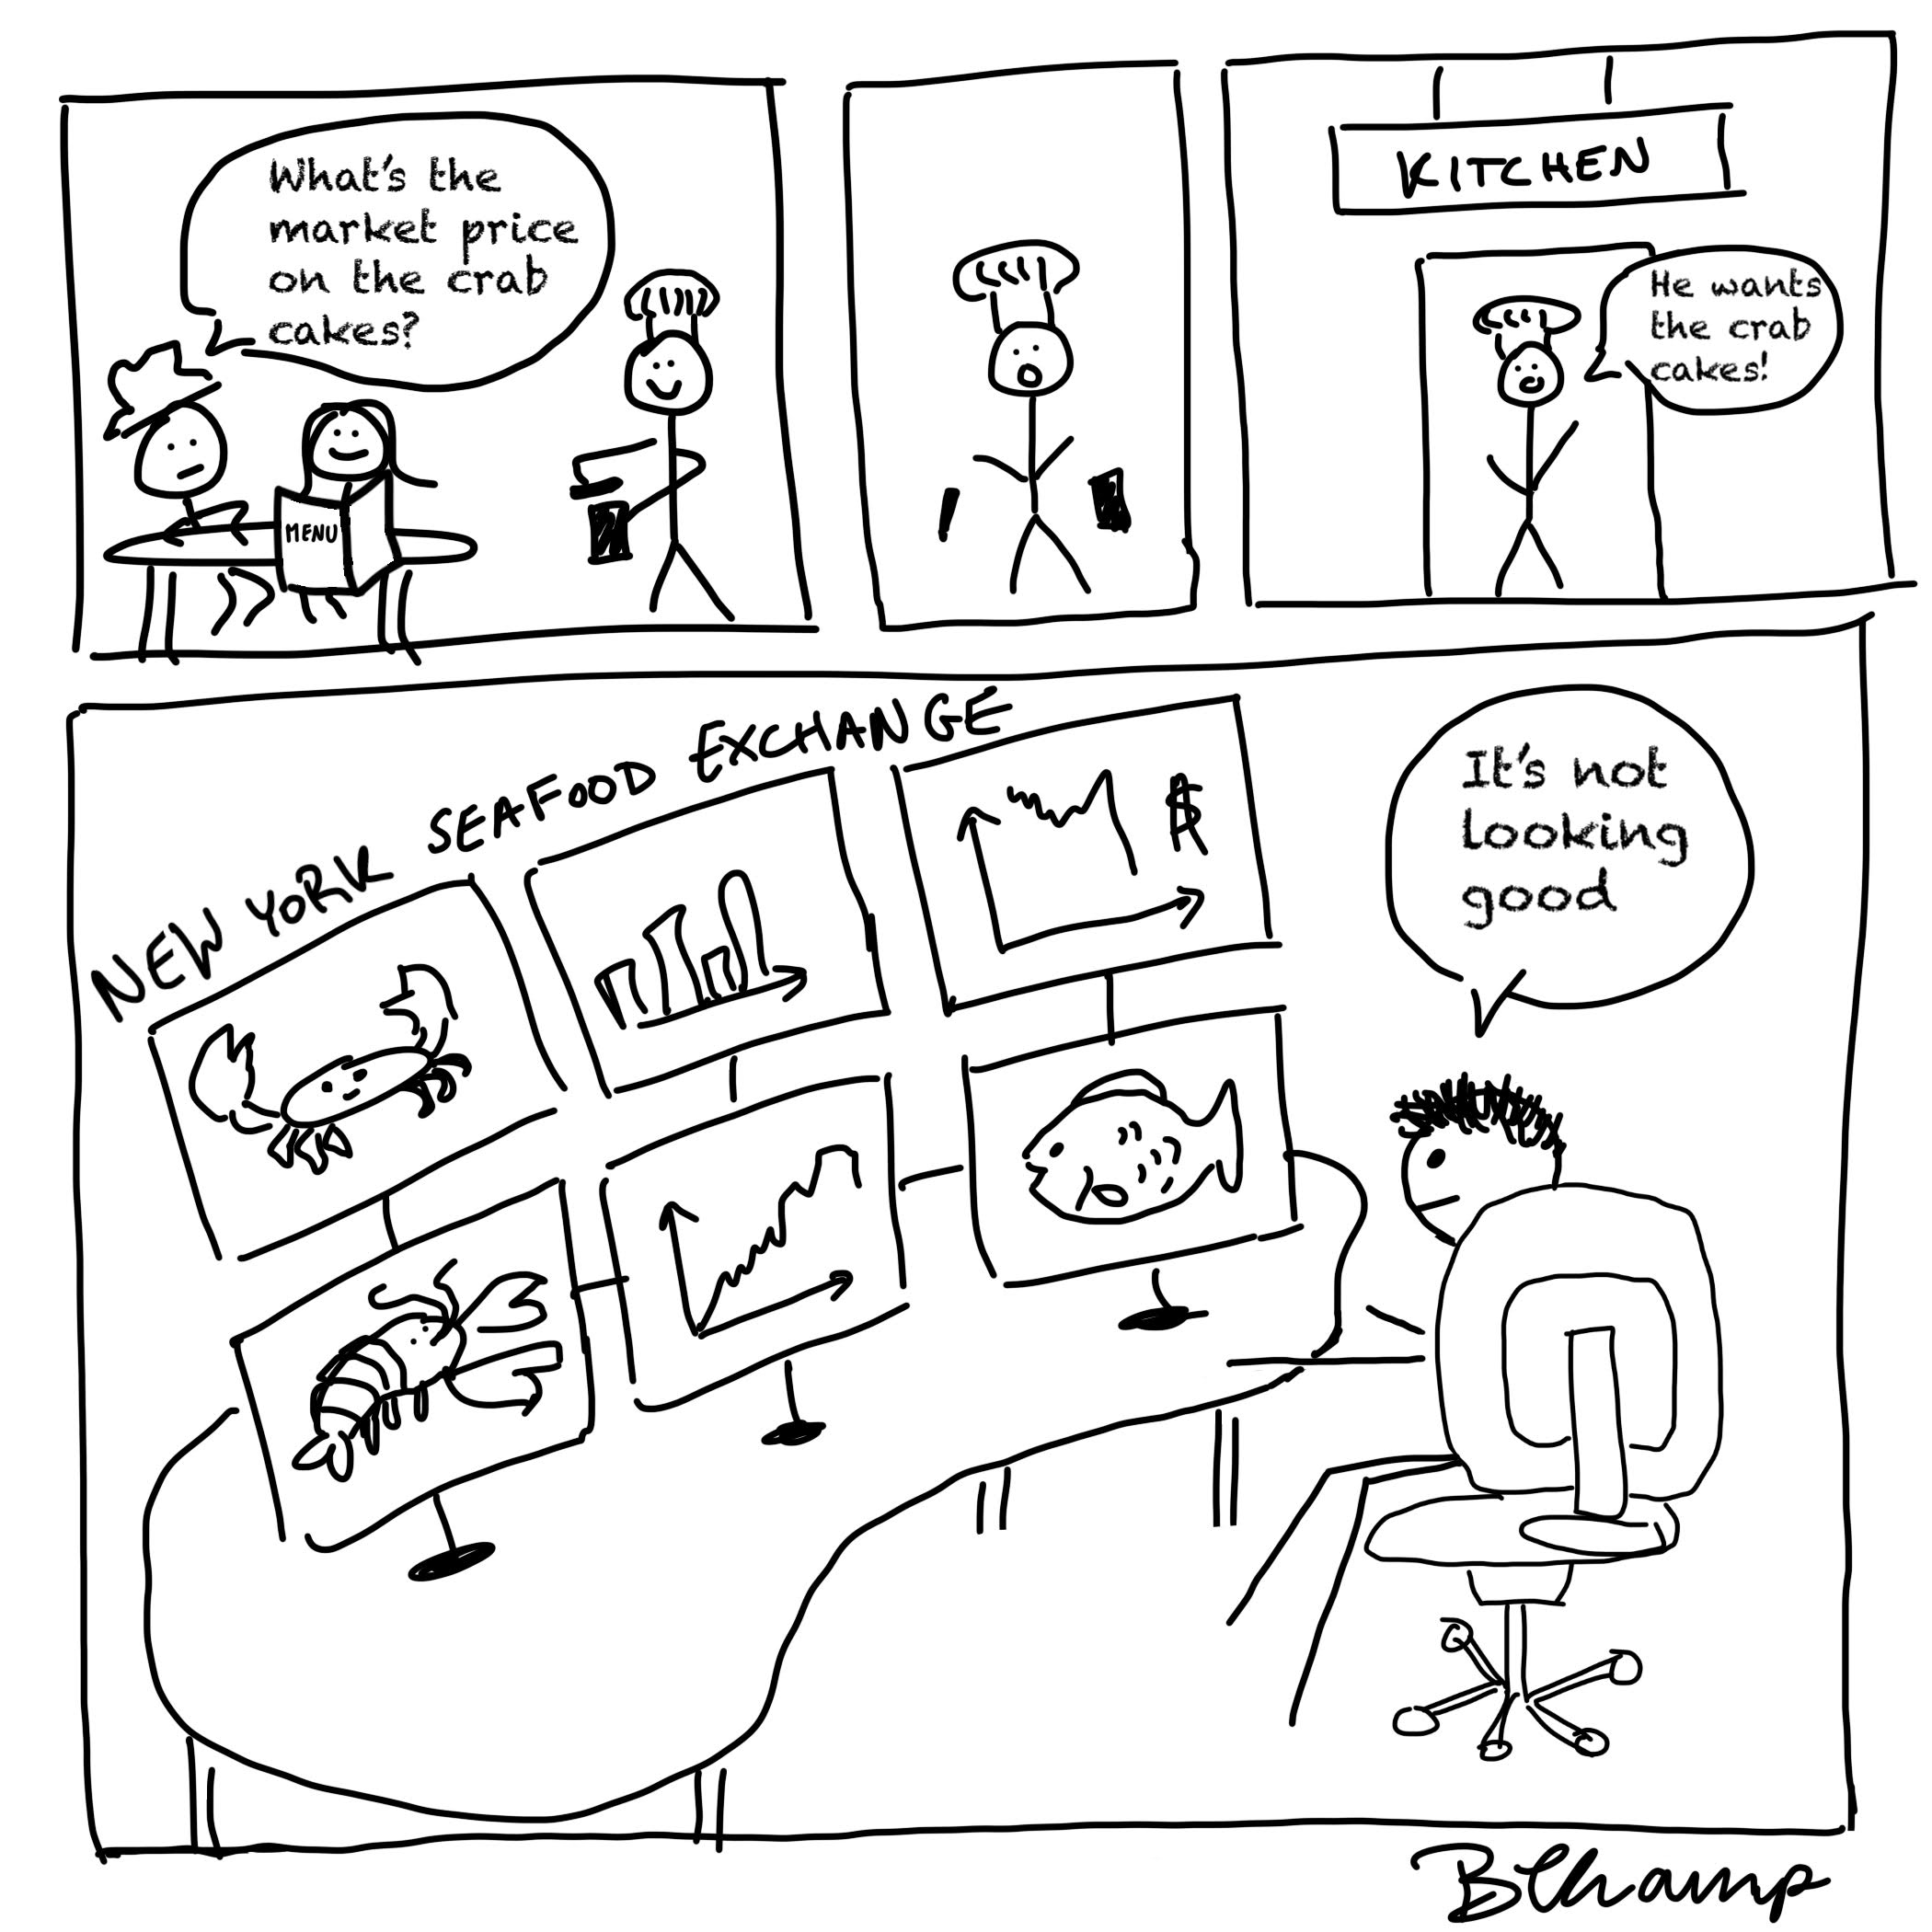 What's the
market price
on the crab
cakes?
MENU
KITCHEN
He wants
the crab
cakes!
NEW YORK SEAFOOD EXCHANGE
$
It's not
looking
good